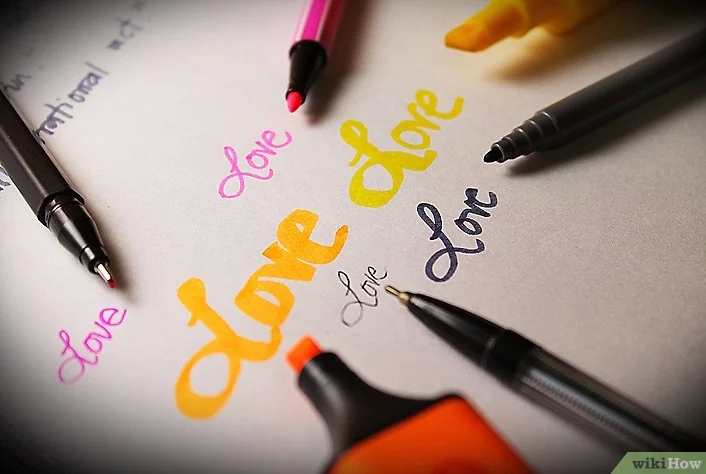 rational act
Love
Love
Love
Love
Love
Love
wikiHow